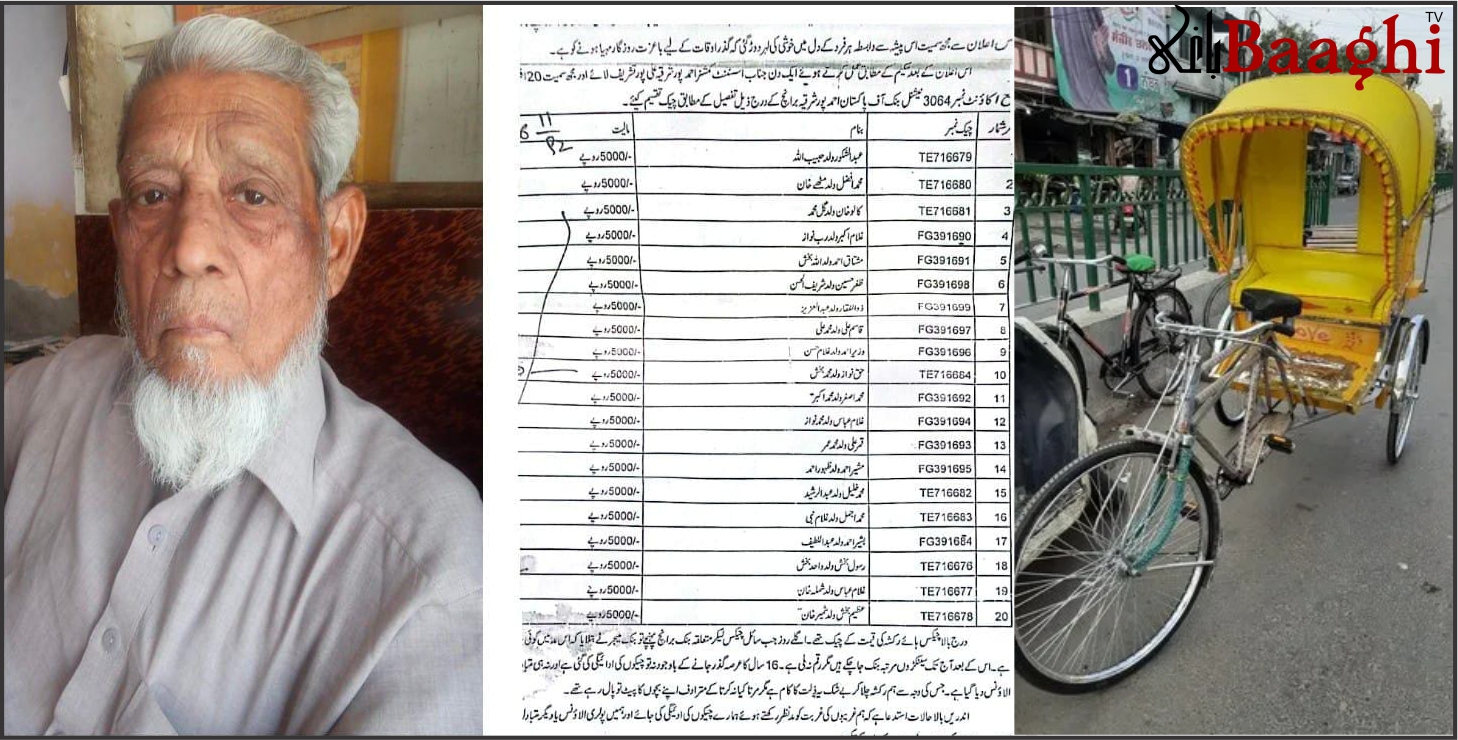 باغی Baaghi TV
اعلان سے مجھ سمیت اس پیشہ سے وابستہ ہر فرد کے دل میں خوشی کی لہر دوڑ گئی کہ گذر اوقات کے لیے باعزت روزگار مہیا ہونے کو ہے۔
اس اعلان کے بعد سکیم کے مطابق عمل کرتے ہوئے ایک دن جناب اسسٹنٹ کمشنر احمد پور شرقیہ علی پور تشریف لائے اور مجھ سمیت 20
اکاؤنٹ نمبر 3064 نیشنل بنک آف پاکستان احمد پور شرقیہ برانچ کے درج ذیل تفصیل کے مطابق چیک تقسیم کیئے۔
رشمار چیک نمبر بنام مالیت
TE716679 عبدالشکور ولد حبیب اللہ 5000/-روپے
2 TE716680 محمد افضل ولد مٹھے خان 5000/-روپے
3 TE716681 کالو خان ولد گل محمد 5000/-روپے
4 FG391690 غلام اکبر ولد رب نواز 5000/-روپے
5 FG391691 مشتاق احمد ولد اللہ بخش 5000/-روپے
6 FG391698 ظفر حسین ولد شریف الحسن 5000/-روپے
7 FG391699 ذوالفقار ولد عبدالعزیز 5000/-روپے
8 FG391697 قاسم علی ولد محمد علی 5000/-روپے
9 FG391696 وزیر احمد ولد غلام حسن 5000/-روپے
10 TE716684 حق نواز ولد محمد بخش 5000/-روپے
11 FG391692 محمد اصغر ولد محمد اکبر 5000/-روپے
12 FG391694 غلام عباس ولد محمد نواز 5000/-روپے
13 FG391693 قمر علی ولد محمد عمر 5000/-روپے
14 FG391695 مشیر احمد ولد ظہور احمد 5000/-روپے
15 TE716682 محمد خلیل ولد عبدالرشید 5000/-روپے
16 TE716683 محمد اجمل ولد غلام نبی 5000/-روپے
17 FG391684 بشیر احمد ولد عبداللطیف 5000/-روپے
18 TE716676 رسول بخش ولد واحد بخش 5000/-روپے
19 TE716677 غلام عباس ولد شملہ خان 5000/-روپے
20 TE716678 عظیم بخش ولد خان 5000/-روپے
درج بالا چیکس ہائے رکشہ کی قیمت کے چیک تھے۔ اگلے روز جب سائل چیکس لیکر متعلقہ بنک برانچ پہنچے تو بنک مینجر نے بتلایا کہ اس مد میں کوئی
ہے۔ اس کے بعد آج تک سینکڑوں مرتبہ بنک جا چکے ہیں مگر رقم نہ ملی ہے۔ 16 سال کا عرصہ گذر جانے کے باوجود نہ تو چیکوں کی ادائیگی کی گئی ہے اور نہ ہی
الاؤنس دیا گیا ہے۔ جس کی وجہ سے ہم رکشہ چلا کر بے شک یہ ذلت کا کام ہے مگر مرتا کیا نہ کرتا کے مترادف اپنے بچوں کا پیٹ تو پال رہے تھے۔
اندریں بالا حالات استدعا ہے کہ ہم غریبوں کی غربت کو مدنظر رکھتے ہوئے ہمارے چیکوں کی ادائیگی کی جائے اور ہمیں پولری الاؤنس یا دیگر متبادل
1
love